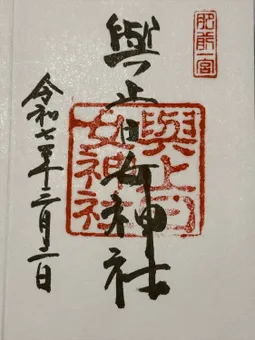 肥前一宮
與止日女神社
與止日女神社
令和七年二月二日